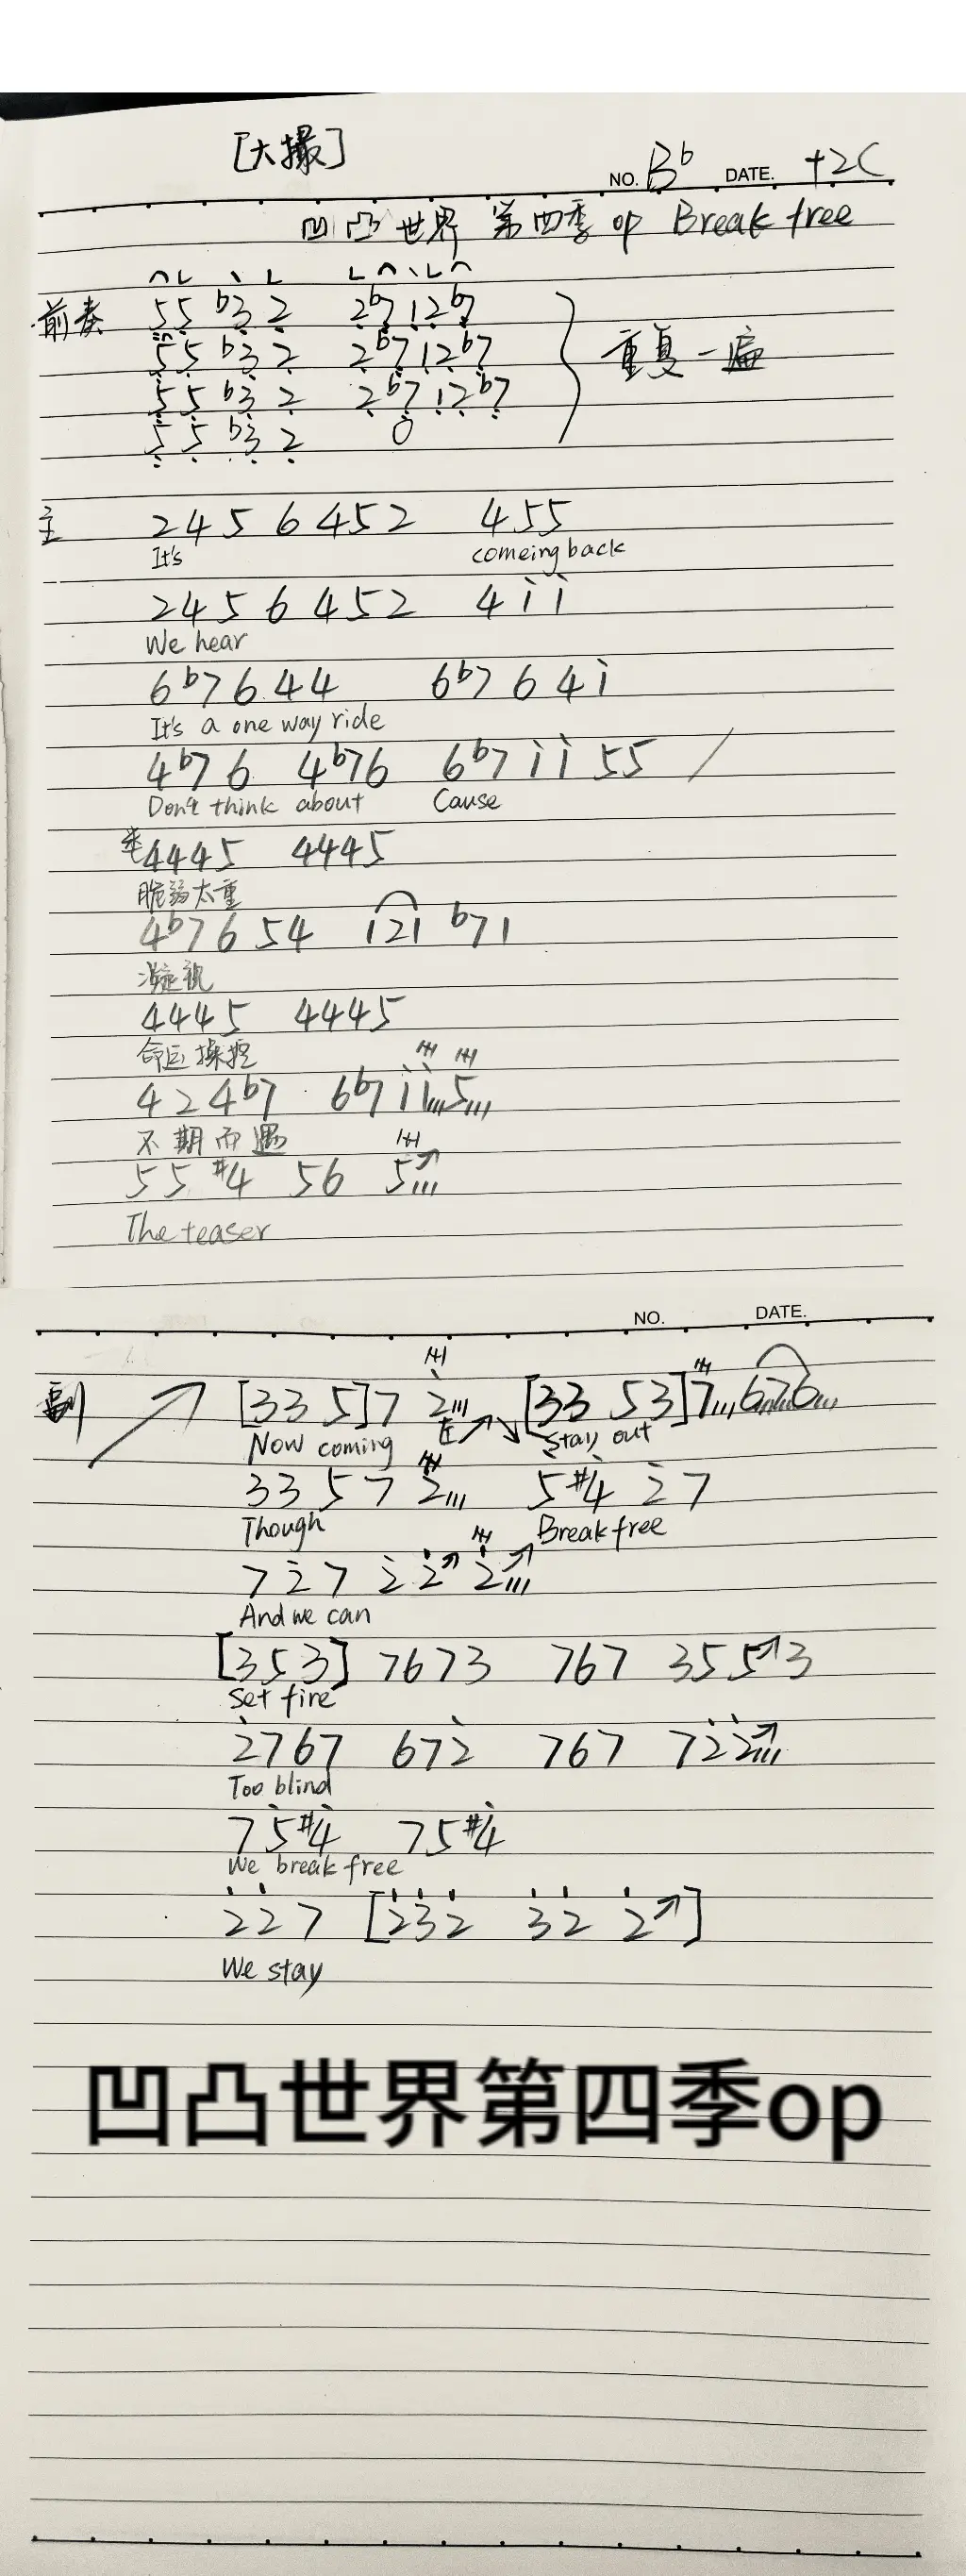 [大撮]
NO. Bb DATE. +2C
凹凸世界 第四季 op Break free
前奏 55 b3 2 2b7 12b7
55 b3 2 2b7 12b7
55 b3 2 2b7 12b7
55 b3 2 0
重复一遍
主 2456452 455
It's comeing back
2456452 4i̇i̇
We hear
6b7644 6b764i̇
It's a one way ride
4b76 4b76 6b7i̇i̇55 /
Don't think about Cause
4445 4445
脆弱太重
4b7654 121 b71
凝视
4445 4445
命运操控
424b7 6b7i̇i̇,,,5,,,
不期而遇
55#4 56 5↗,,,
The teaser
NO. DATE.
副 ↗ [335]7 2̇,,, [33 53]7,,,676,,,
Now coming ↗↘ Stay out
3357 2̇,,, 5̇#4̇ 2̇7
Though Break free
72̇7 2̇2̇↗ 2̇↗,,,
And we can
[353] 7673 767 355↗3
Set fire
2̇767 672̇ 767 72̇2̇↗,,,
Too blind
75̇#4̇ 75#4̇
We break free
2̇2̇7 [2̇3̇2̇ 3̇2̇ 2̇↗]
We stay
凹凸世界第四季op